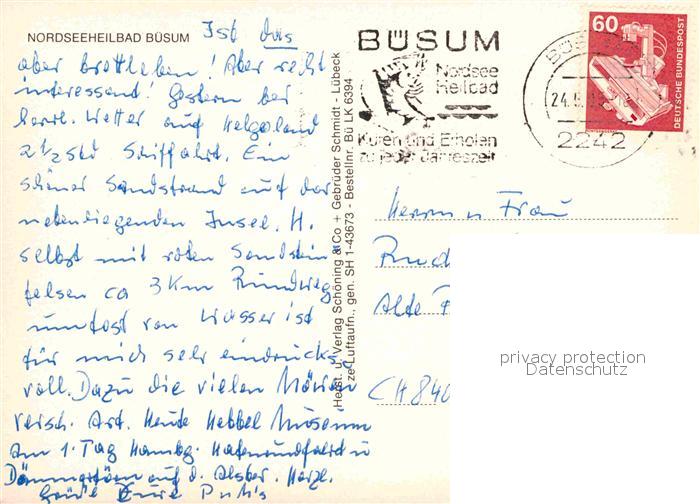 NORDSEEHEILBAD BÜSUM Ist das
aber brettleben! Aber recht
interessant! Gestern bei
herrl. Wetter auf Helgoland
2½ Std Schiffahrt. Ein
schöner Sandstrand auf der
nebenliegenden Insel. H.
selbst mit roten Sandstein
felsen ca 3 km Rundweg
umtost von Wasser ist
für mich sehr eindrucks
voll. Dazu die vielen Möwen
versch. Art. Heute Hebbel Museum
Am 1. Tag Hambg. Hafenrundfahrt u
auf d. Alster. Herzl.
Grüße Eure
Herst. u. Verlag Schöning & Co + Gebrüder Schmidt - Lübeck
ze Luftaufn., gen. SH 1-43673 - Bestellnr. Bü LK 6394
BÜSUM
Nordsee
Heilbad
Kuren und Erholen
zu jeder Jahreszeit
24.5.
2242
60
DEUTSCHE BUNDESPOST
Herrn u Frau
Rud
Alte
CH 840
privacy protection
Datenschutz